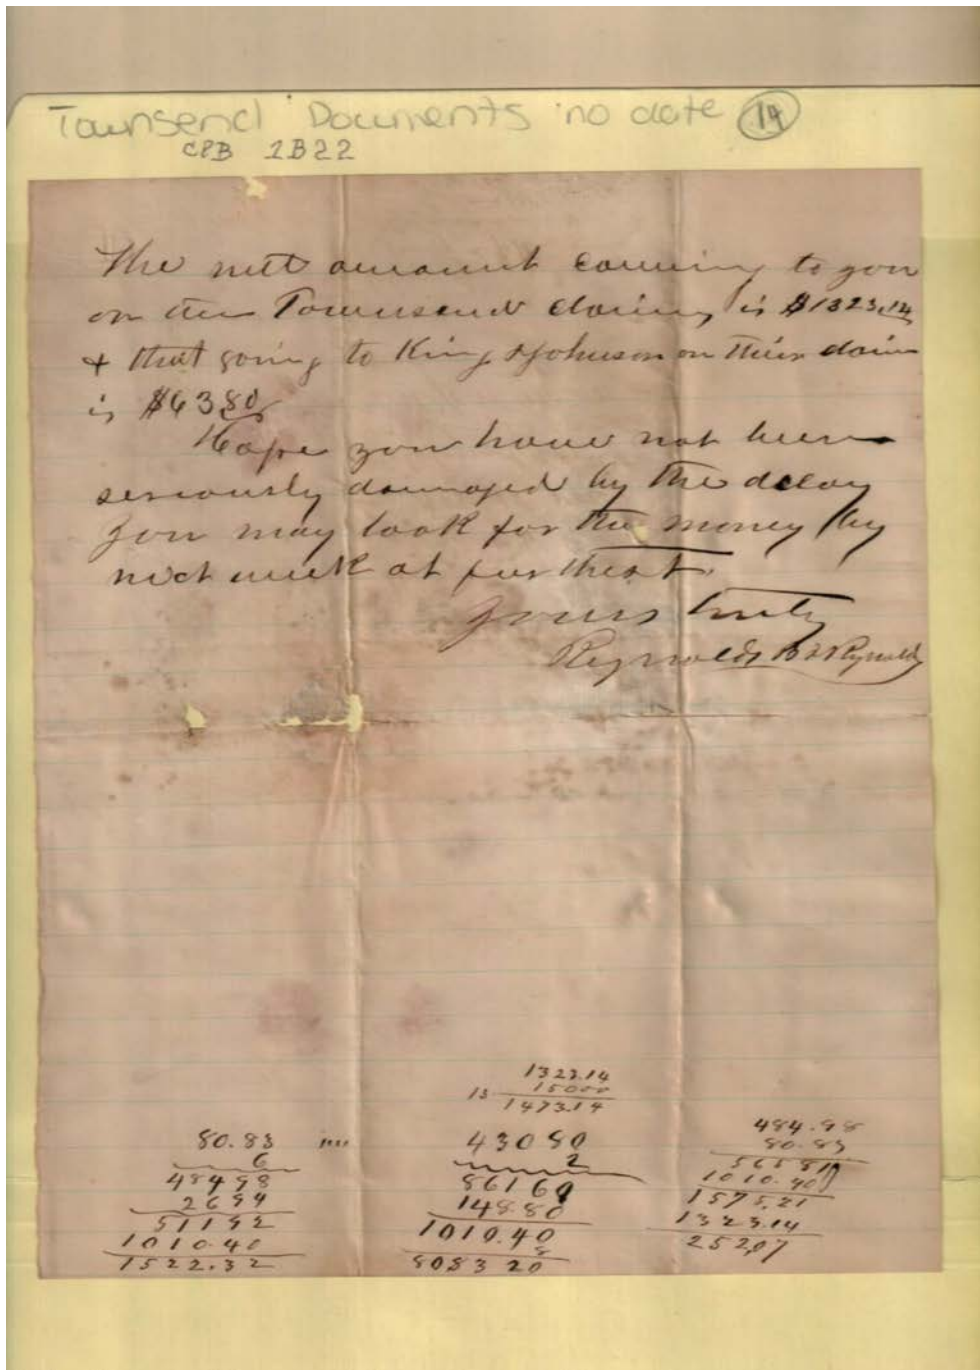 Townsend Documents no date 14
CPB 1B22
The nett amount coming to you
on the Townsend claim, is $1323.14
& that going to King & Johnson on their claim
is $63 80
Hope you have not been
seriously damaged by the delay
you may look for the money by
next week at furthest.
Yours truly
Reynolds & Reynolds
1323.14
15000
13
1473.14
80.83
6
48498
2694
51192
1010.40
1522.32
43080
2
86160
148.80
1010.40
8
8083 20
484.98
80.83
56581
1010.40
1575.21
1323.14
252.07